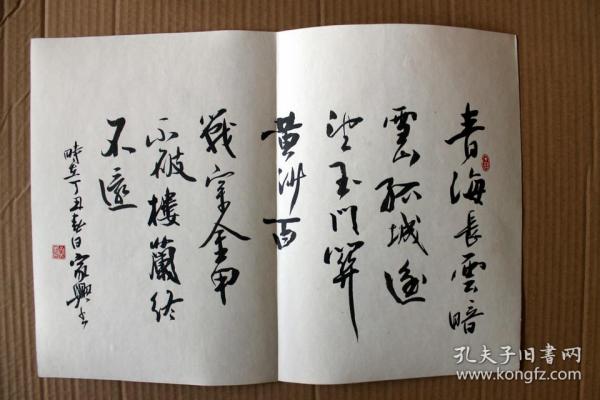 青海長雲暗
雪山孤城遥
望玉門關
黄沙百
戰穿金甲
不破樓蘭終
不還
時在丁丑春日家興書
孔夫子旧書网
www.kongfz.com